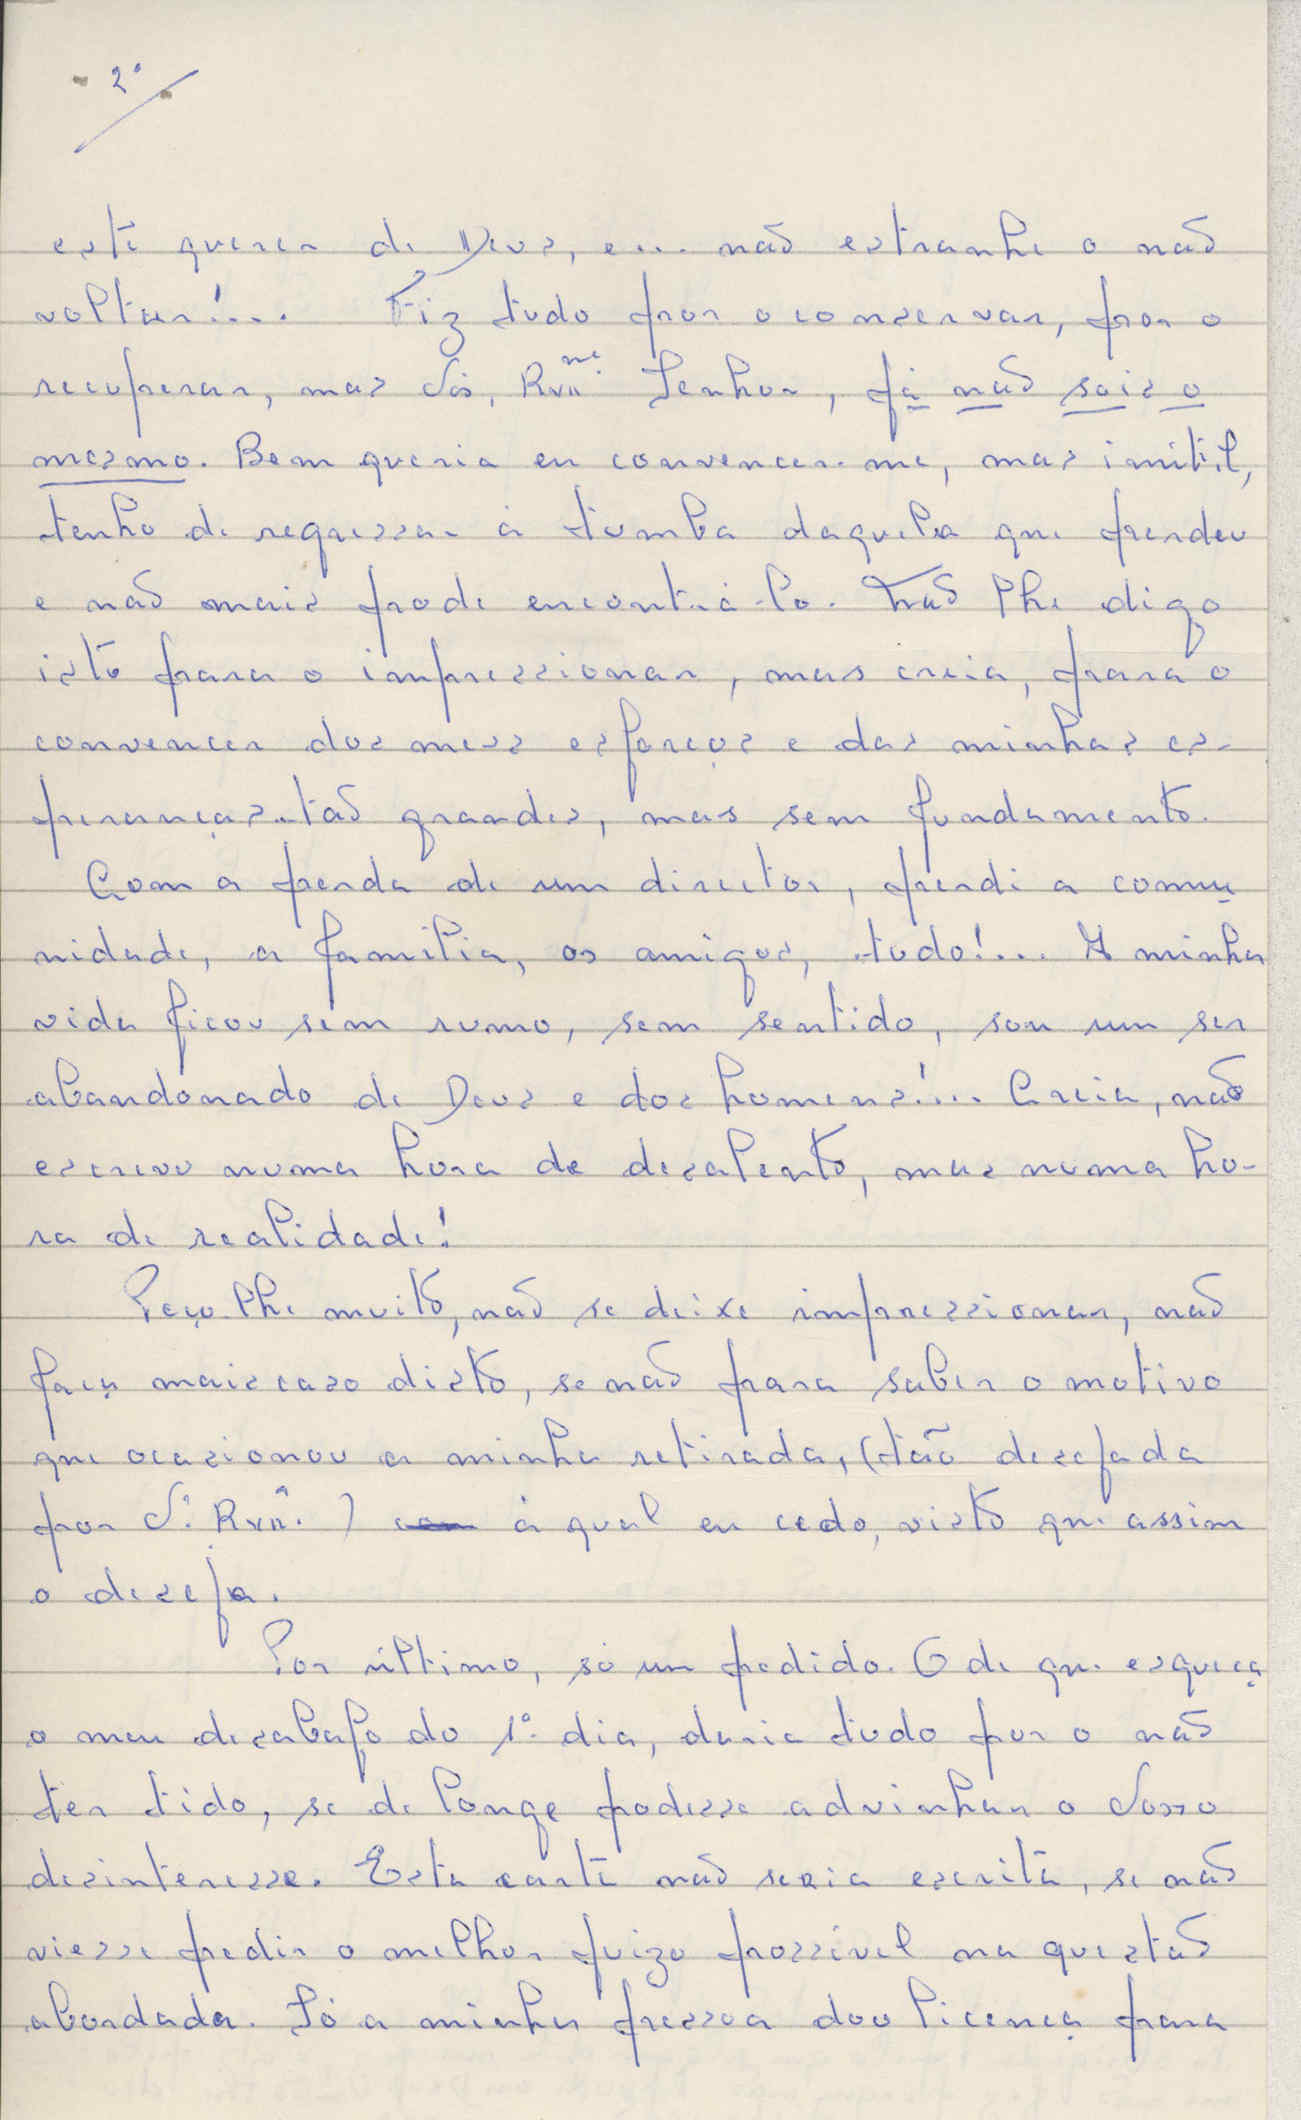 2º
este querer de Deus, e... não estranhe o não
voltar!... Fiz tudo por o conservar, por o
recuperar, mas Vós, Rvmº Senhor, já não sois o
mesmo. Bem queria eu convencer-me, mas inútil,
tenho de regressar à tumba daquela que perdeu
e não mais pode encontrá-lo. Não lhe digo
isto para o impressionar, mas creia, para o
convencer dos meus esforços e das minhas es-
peranças tão grandes, mas sem fundamento.
Com a perda de um director, perdi a comu
nidade, a família, os amigos, tudo!... A minha
vida ficou sem rumo, sem sentido, sou um ser
abandonado de Deus e dos homens!... Creia, não
escrevo numa hora de desalento, mas numa ho-
ra de realidade!
Peço lhe muito, não se deixe impressionar, não
faça mais caso disto, se não para saber o motivo
que ocasionou a minha retirada, (tão desejada
por Vª. Rvª.) com à qual eu cedo, visto que assim
o deseja.
Por último, só um pedido. O de que esqueça
o meu desabafo do 1º. dia, daria tudo por o não
ter tido, se de longe podesse advinhar o Vosso
desinteresse. Esta carta não seria escrita, se não
viesse pedir o melhor juizo possível na questão
abordada. Só a minha pessoa dou licença para